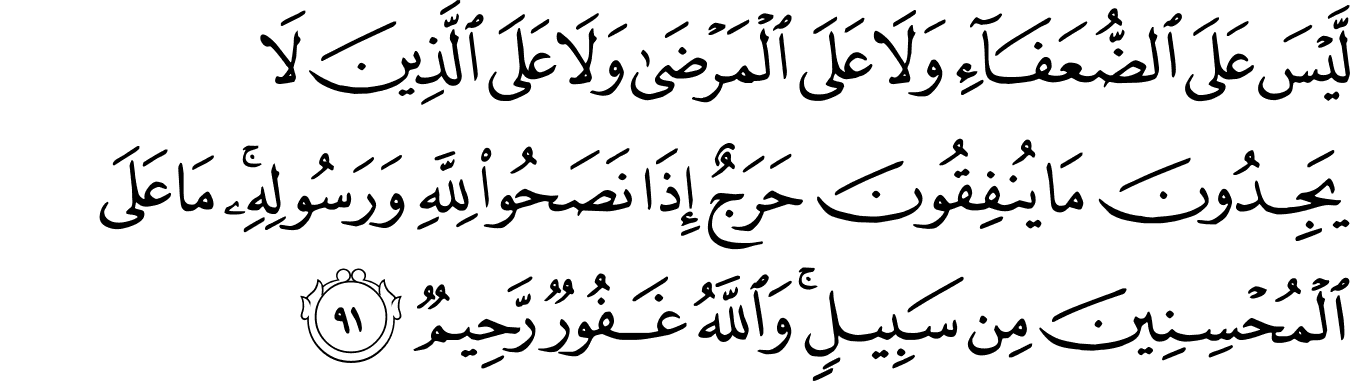 لَّيْسَ عَلَى ٱلضُّعَفَآءِ وَلَا عَلَى ٱلْمَرْضَىٰ وَلَا عَلَى ٱلَّذِينَ لَا
يَجِدُونَ مَا يُنفِقُونَ حَرَجٌ إِذَا نَصَحُوا۟ لِلَّهِ وَرَسُولِهِۦ ۚ مَا عَلَى
ٱلْمُحْسِنِينَ مِن سَبِيلٍ ۚ وَٱللَّهُ غَفُورٌ رَّحِيمٌ ٩١